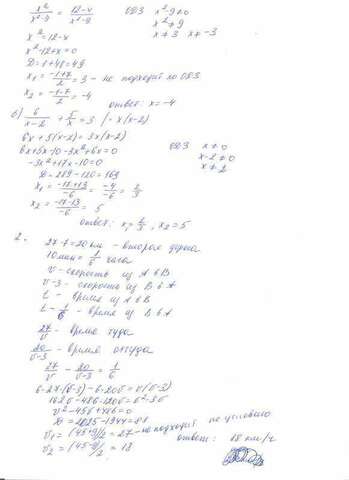 x²/(x²-9) = (12-x)/(x²-9)   ОДЗ x²-9≠0
x² = 12-x   x²≠9
x²-12+x=0   x≠3 x≠-3
D=1+48=49
x₁ = (-1+7)/2 = 3 - не подходит по ОДЗ
x₂ = (-1-7)/2 = -4
ответ: x=-4
б) 6/(x-2) + 5/x = 3 | · x(x-2)
6x+5(x-2)=3x(x-2)   ОДЗ x≠0
6x+5x-10-3x²+6x=0   x-2≠0
-3x²+17x-10=0   x≠2
D=289-120=169
x₁ = (-17+13)/-6 = -4/-6 = 2/3
x₂ = (-17-13)/-6 = 5
ответ: x₁=2/3, x₂=5
2.
27-7=20км - вторая дорога
10мин=1/6 часа
v-скорость из А в В
v-3-скорость из В в А
t- время из А в В
t-1/6 - время из В в А
27/v - время туда
20/(v-3) - время оттуда
27/v - 20/(v-3) = 1/6
6·27(v-3)-6·20v=v(v-3)
162v-486-120v=v²-3v
v²-45v+486=0
D=2025-1944=81
v₁=(45+9)/2=27-не подходит по условию
v₂=(45-9)/2=18   ответ: 18 км/ч